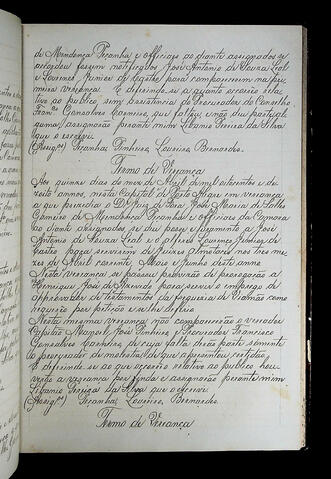 de Mendonça Peçanha e officiaes ao diante assignados se
accordou serem notificados José Antonio de Souza Leal
e Lourenço Junior de Castro para comparecerem na pri-
meira vereança. E deferindo-se a quanto occorreo rela-
tivo ao publico sem assistencia do Procurador do Conselho
Fran.co Gonsalves Carneiro, que faltou e não deu parte al-
guma, assignarão perante mim Libanio Pereira da Silva
que o escrevi
(Assig.os) Peçanha, Pinheiro, Loureiro, Bernardes.
Termo de Vereança
Aos quinze dias do mez de Abril de mil oitocentos e de-
zoito annos, nesta Capital de Porto Alegre em vereança
a que presedio o Dr. Juiz de Fora José Maria de Salles
Gameiro de Mendonça Peçanha e officiaes da Camara
ao diante assignados, se deu posse e juramento a José
Antonio de Souza Leal e o alferes Lourenço Junior de
Castro para servirem de juizes almotaces nos tres me-
zes de Abril corrente, Maio e Junho deste anno.
Nesta vereança se passou provisão de prorogação a
Henrique José de Azevedo para servir o emprego de
approvador de testamentos da freguezia de Viamão como
requereo por petição e se lhe deferio.
Nesta mesma vereança não comparecerão o vereador
Capitão Manoel José Pinheiro e Procurador Francisco
Gonsalves Carneiro, de cuja falta derão parte somente
o procurador de molestia de que apresentou certidão.
E deferindo-se ao que occorreo relativo ao publico hou-
verão a vereança por finda e assignarão perante mim
Libanio Pereira da Silva que o escrevi
(Assig.os) Peçanha, Loureiro, Bernardes.
Termo de Vereança